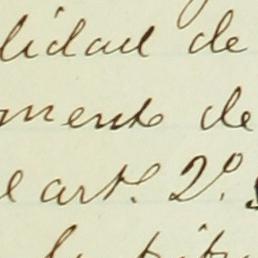 lidad de
mento de
l art.º 2º.